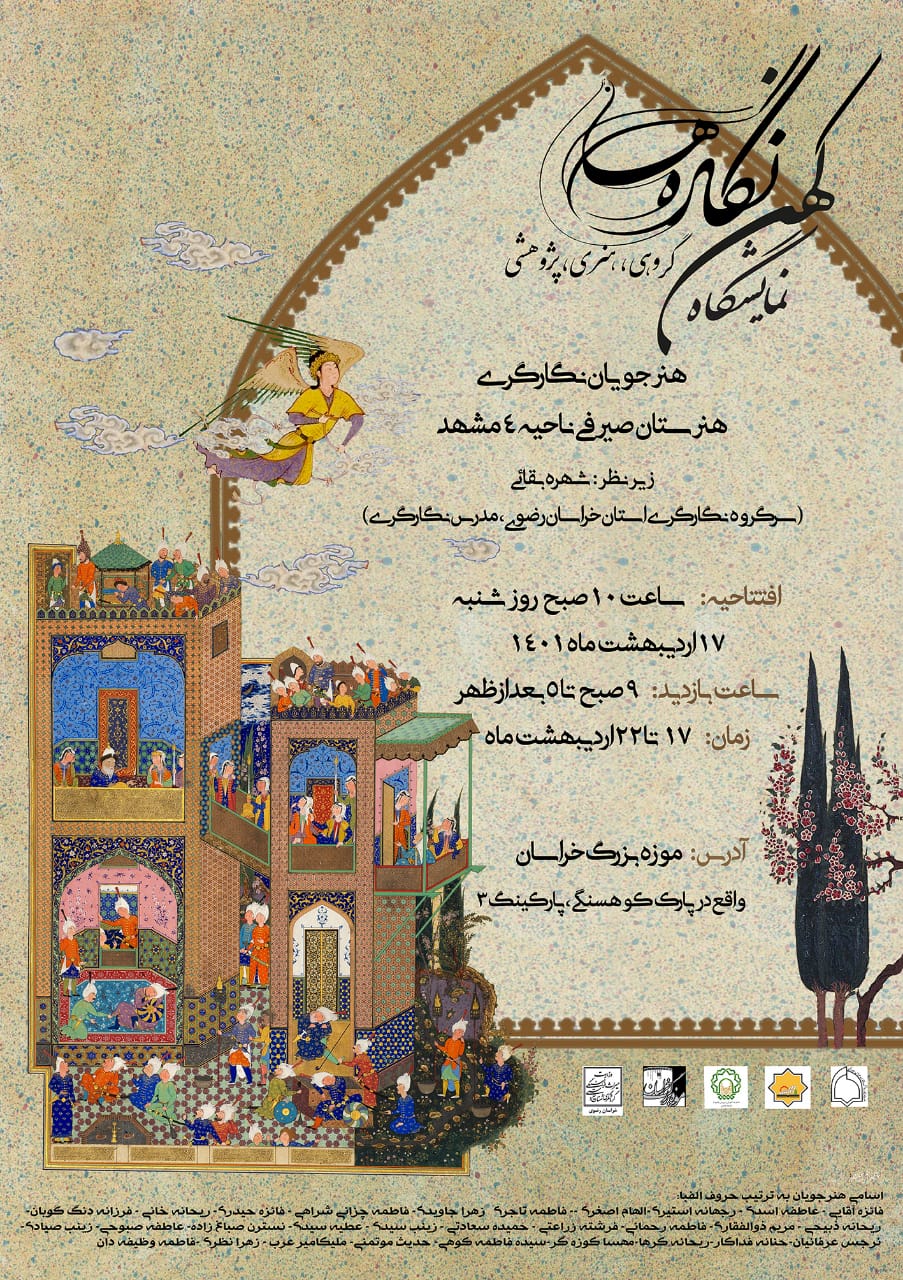 نمایشگاه
کهن نگاره ها
گروهی، هنری، پژوهشی
هنرجویان نگارگری
هنرستان صیرفی ناحیه ٤ مشهد
زیر نظر: شهره بقائی
(سرگروه نگارگری استان خراسان رضوی، مدرس نگارگری)
افتتاحیه: ساعت ۱۰ صبح روز شنبه
۱۷ اردیبهشت ماه ۱٤۰۱
ساعت بازدید: ۹ صبح تا ۵ بعد از ظهر
زمان: ۱۷ تا ۲۲ اردیبهشت ماه
آدرس: موزه بزرگ خراسان
واقع در پارک کوهسنگی، پارکینگ ۳
خراسان رضوی
اسامی هنرجویان به ترتیب حروف الفبا:
فائزه آقایی - عاطفه اسدی - ریحانه استیری - الهام اصغری -- فاطمه تاجری زهرا جاویدی - فاطمه چزانی شراهی - فائزه حیدری - ریحانه خانی - فرزانه دنگ کوبان-
ریحانه ذبیحی - مریم ذوالفقاری - فاطمه رحمانی - فرشته زراعتی - حمیده سعادتی - زینب سیدی - عطیه سیدی - نسترن صباغ زاده - عاطفه صبوحی - زینب صیادی-
نرجس عرفانیان - حنانه فداکار - ریحانه کرها - مهسا کوزه گر - سیده فاطمه کوهی - حدیث موتمنی - ملیکامیر عرب - زهرا نظری - فاطمه وظیفه دان